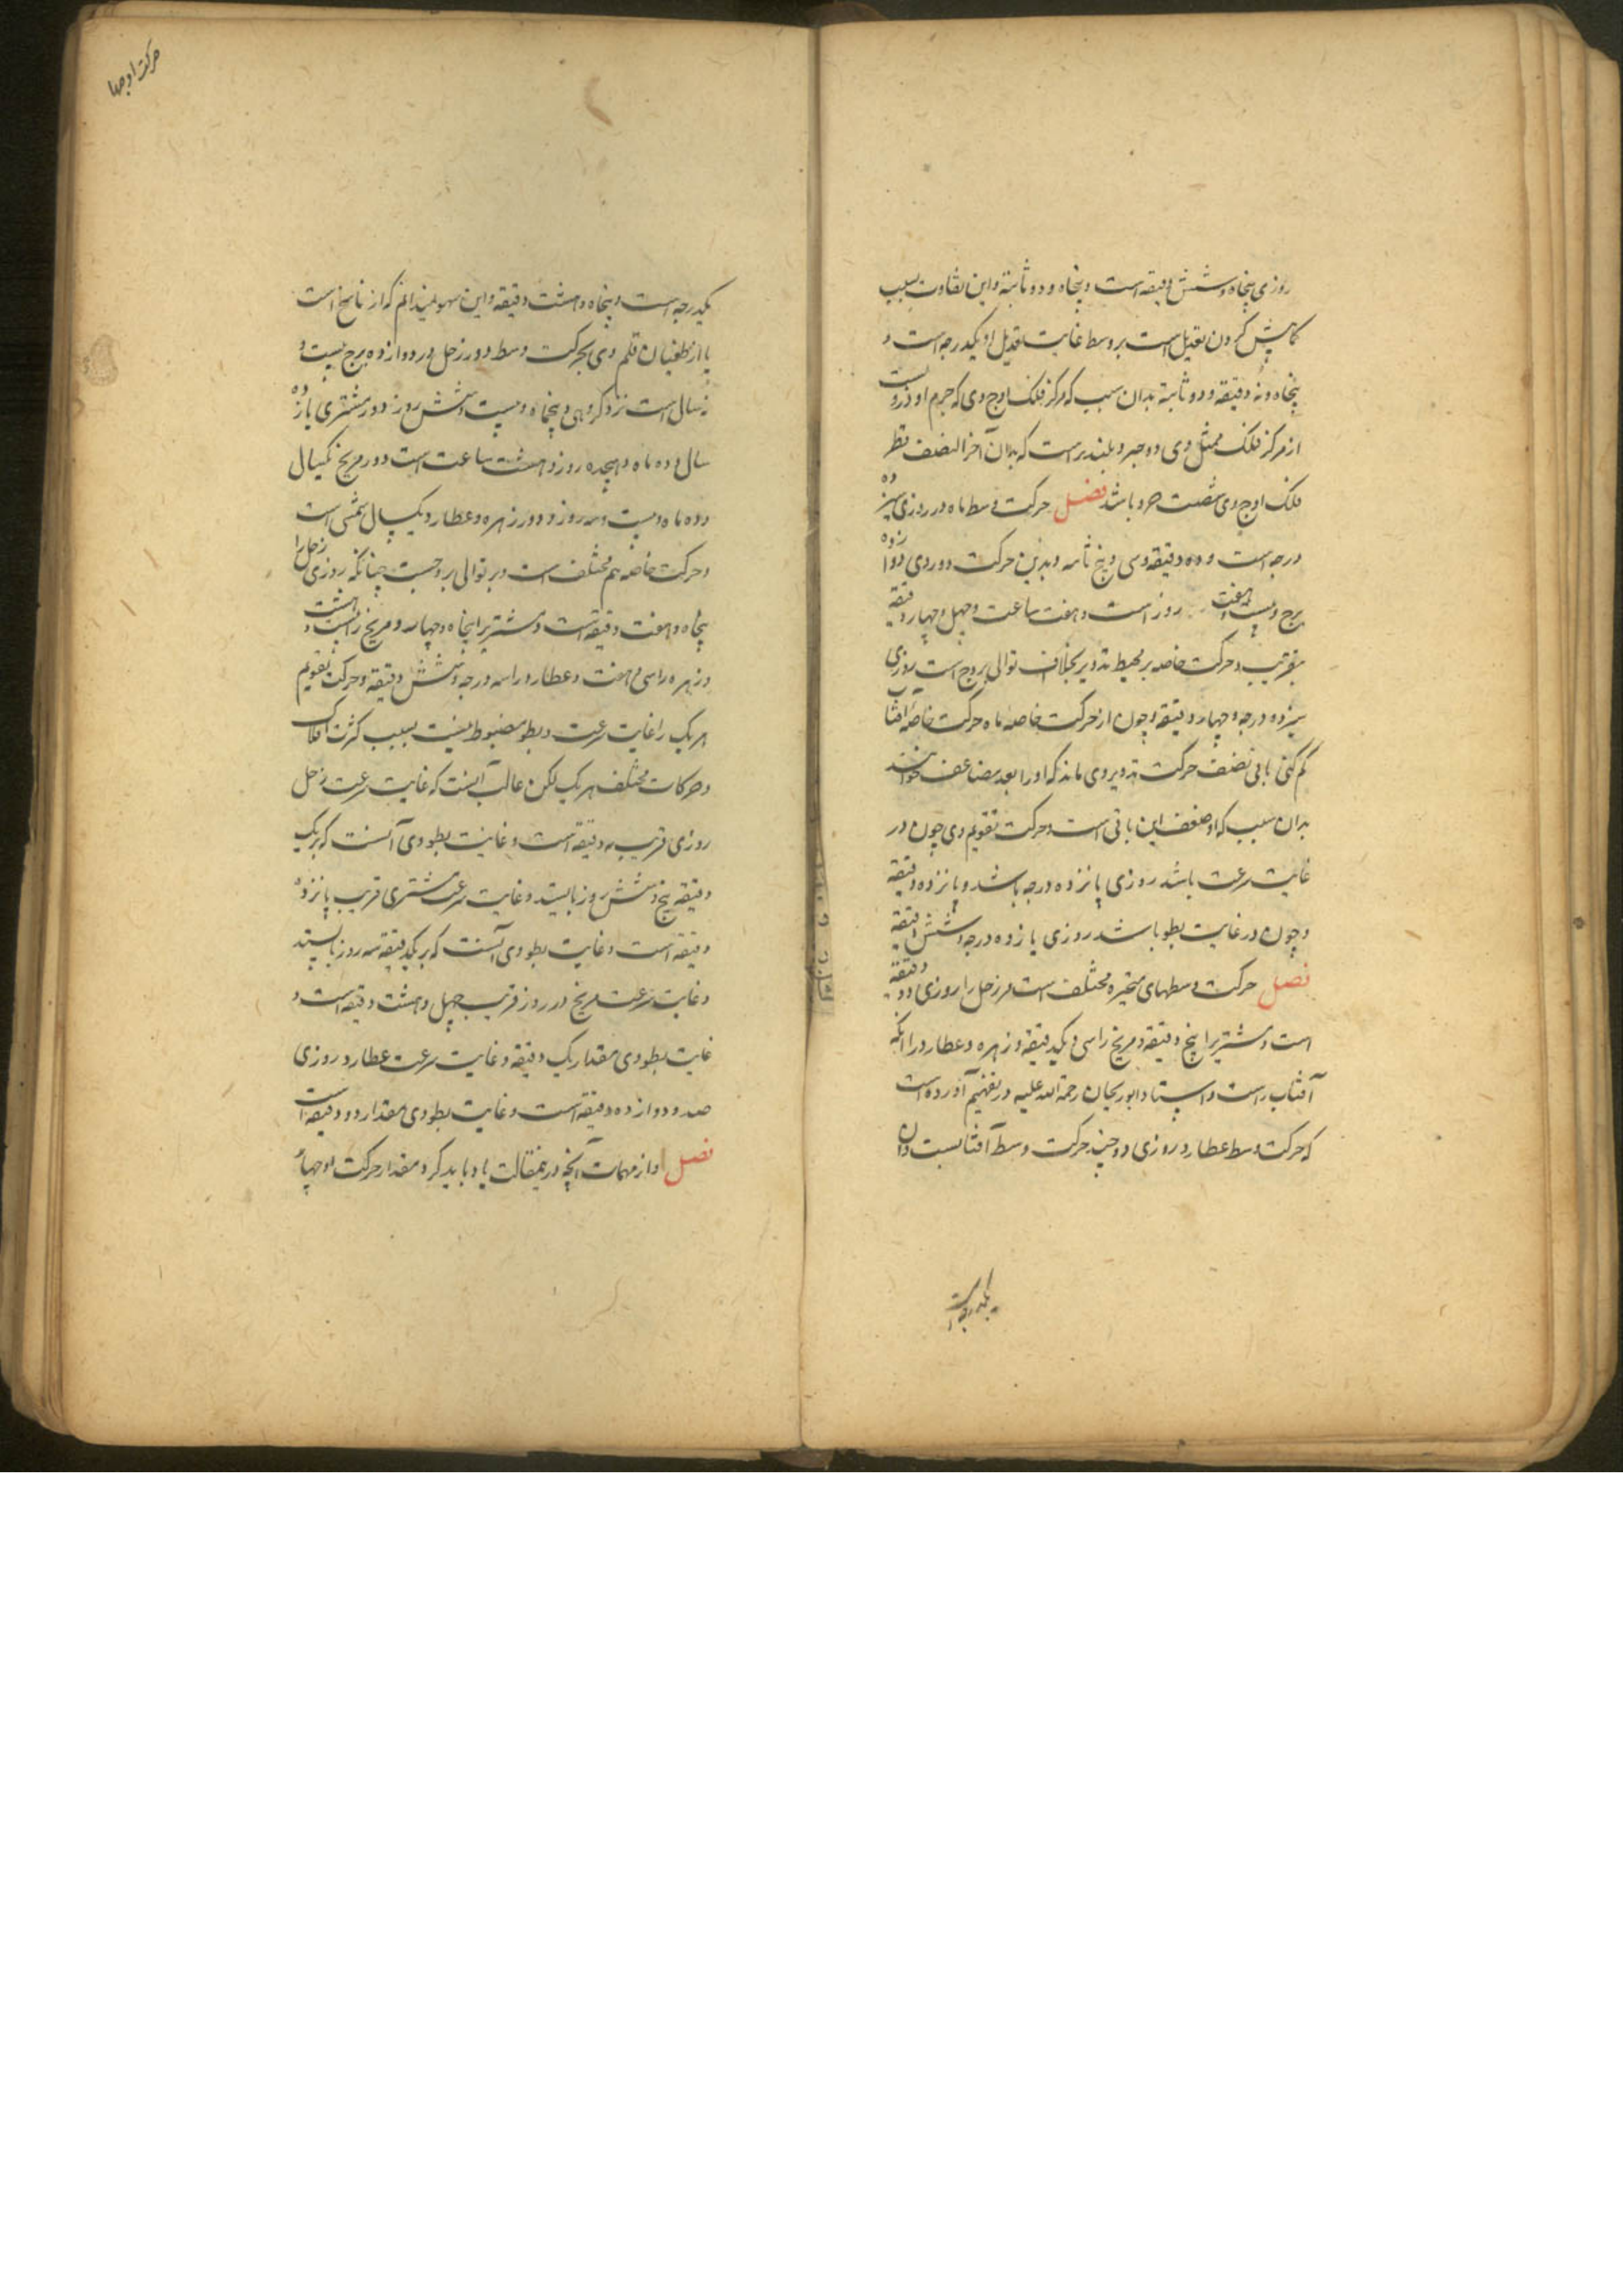 روزی پنجاه و شش دقیقه است و پنجاه و دو ثانیة و این تفاوت بسبب
کما بیش کردن تعدیل است بر وسط غایت تعدیل او یکدرجه است و
پنجاه و نه دقیقه و دو ثانیة بدان سبب که مرکز فلک اوج وی که جرم او دروست
از مرکز فلک ممثل وی دو جزو بلندتر است که بدان اجزا نصف قطر
فلک اوج وی شصت جزو باشد فصل حرکت وسط ماه در روزی سیزده
درجه است و ده دقیقه و سی و پنج ثانیه و بدین حرکت دور وی دوازده
برج و بیست و هفت روز است و هفت ساعت و چهل و چهار دقیقه
بتقریب و حرکت خاصه بر محیط تدویر بخلاف توالی بروج است روزی
سیزده درجه و چهار دقیقه و چون از حرکت خاصه ماه حرکت خاصه آفتاب
کم کنی باقی نصف حرکت تدویر وی ماند که او را بعد مضاعف خوانند
بدان سبب که او ضعف این باقی است و حرکت تقویم وی چون در
غایت سرعت باشد روزی پانزده درجه باشد و پانزده دقیقه
و چون در غایت بطو باشد روزی یازده درجه و شش دقیقه
فصل حرکت وسطهای متحیره مختلف است مر زحل را روزی دو دقیقه
است و مشتریرا پنج دقیقه و مریخ را سی و یکدقیقه و زهره و عطارد را آنکه
آفتاب راست و استاد ابوریحان رحمة الله علیه در تفهیم آورده است
که حرکت وسط عطارد روزی دو چند حرکت وسط آفتابست و آن
یکدرجه است
حرکت اوجها
یکدرجه است و پنجاه و هشت دقیقه و این سهو نمیدانم که از ناسخ است
یا از طغیان قلم وی بحرکت وسط دور زحل در دوازده برج بیست و
نه سال است نزد گروهی و پنجماه و بیست و شش روز و دور مشتری یازده
سال و ده ماه و هیجده روز و هشت ساعت است و دور مریخ یکسال
و ده ماه و بیست و سه روز و دور زهره و عطارد یکسال شمسی است
و حرکت خاصه هم مختلف است و بر توالی بروجست چنانکه روزی زحل را
پنجاه و هفت دقیقه است و مشتریرا پنجاه و چهار و مریخ را بیست و هشت
و زهره را سی و هفت و عطارد را سه درجه و شش دقیقه و حرکت تقویم
هر یک را غایت سرعت و بطو مضبوط نیست بسبب کثرت افلاک
و حرکات مختلف هر یک لکن غالب آنست که غایت سرعت زحل
روزی قریب به دقیقه است و غایت بطو وی آنست که بر یک
دقیقه پنج و شش روز بایستد و غایت سرعت مشتری قریب پانزده
دقیقه است و غایت بطو وی آنست که بر یکدقیقه سه روز بایستد
و غایت سرعت مریخ در روز قریب چهل و هشت دقیقه است و
غایت بطو وی مقدار یک دقیقه و غایت سرعت عطارد روزی
صد و دوازده دقیقه است و غایت بطو وی مقدار دو دقیقه است
فصل و از مهمات آنچه در ینمقالت یاد باید کرد مقدار حرکت اوجها